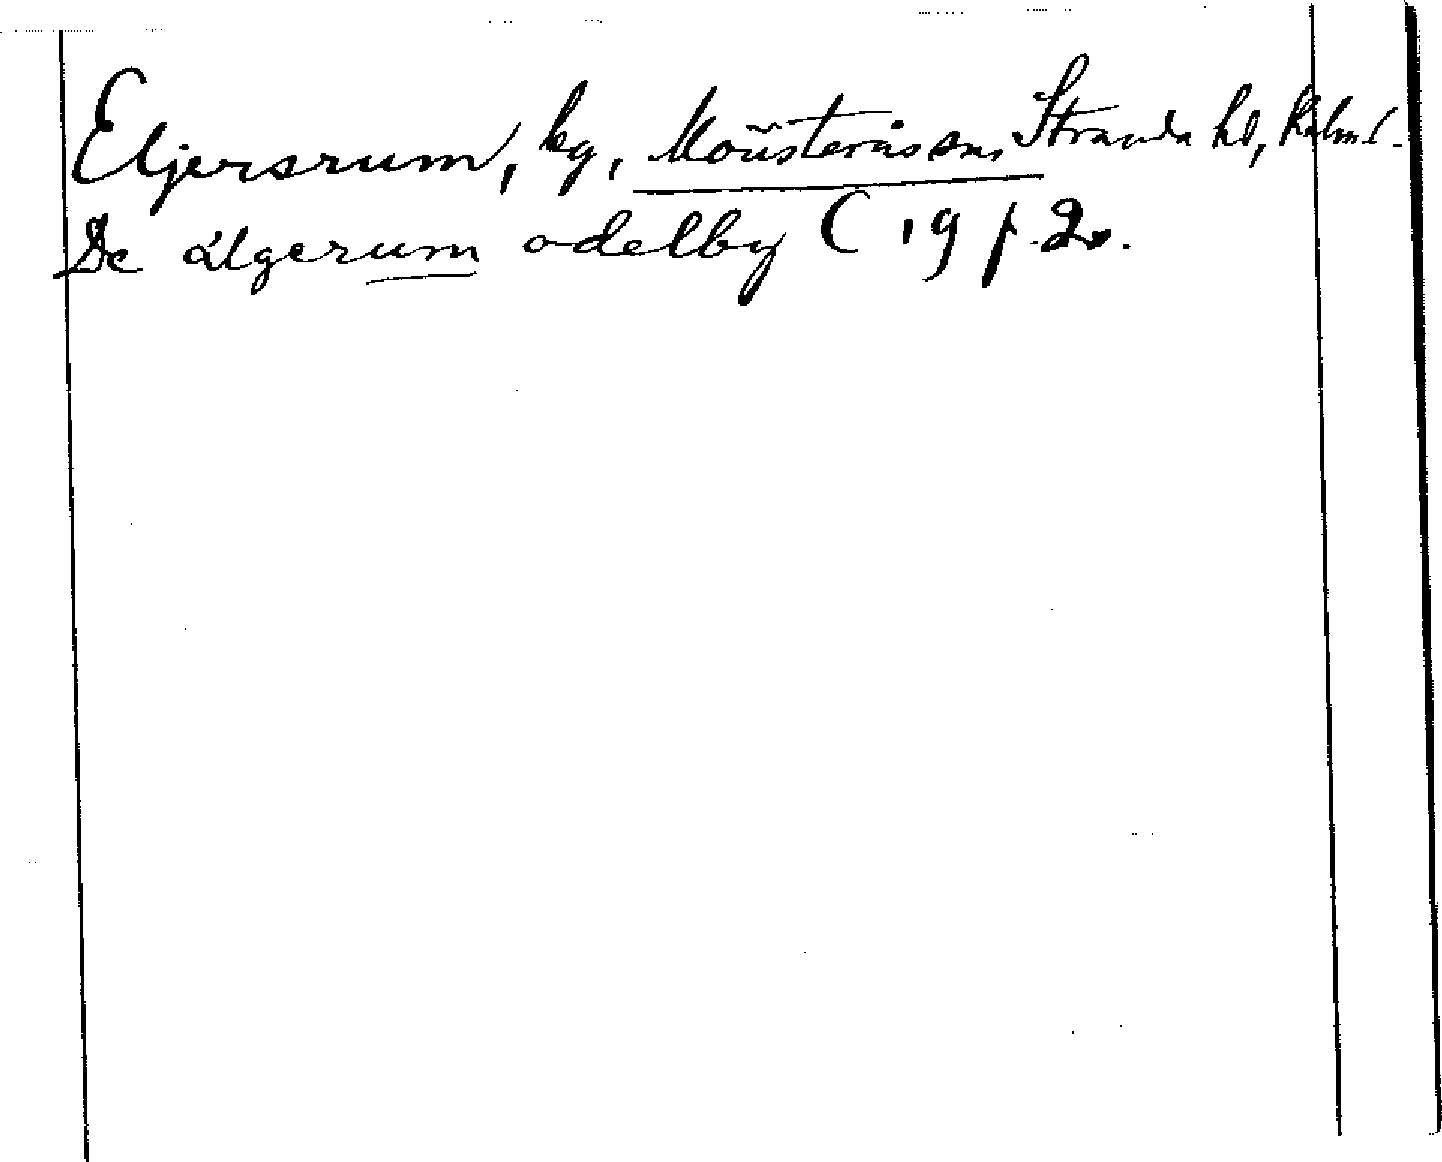 Eljersrum, by, Mönsterås sn, Stranda hd, Kalm. l.
De ælgerum odelby C 19 f 2v.